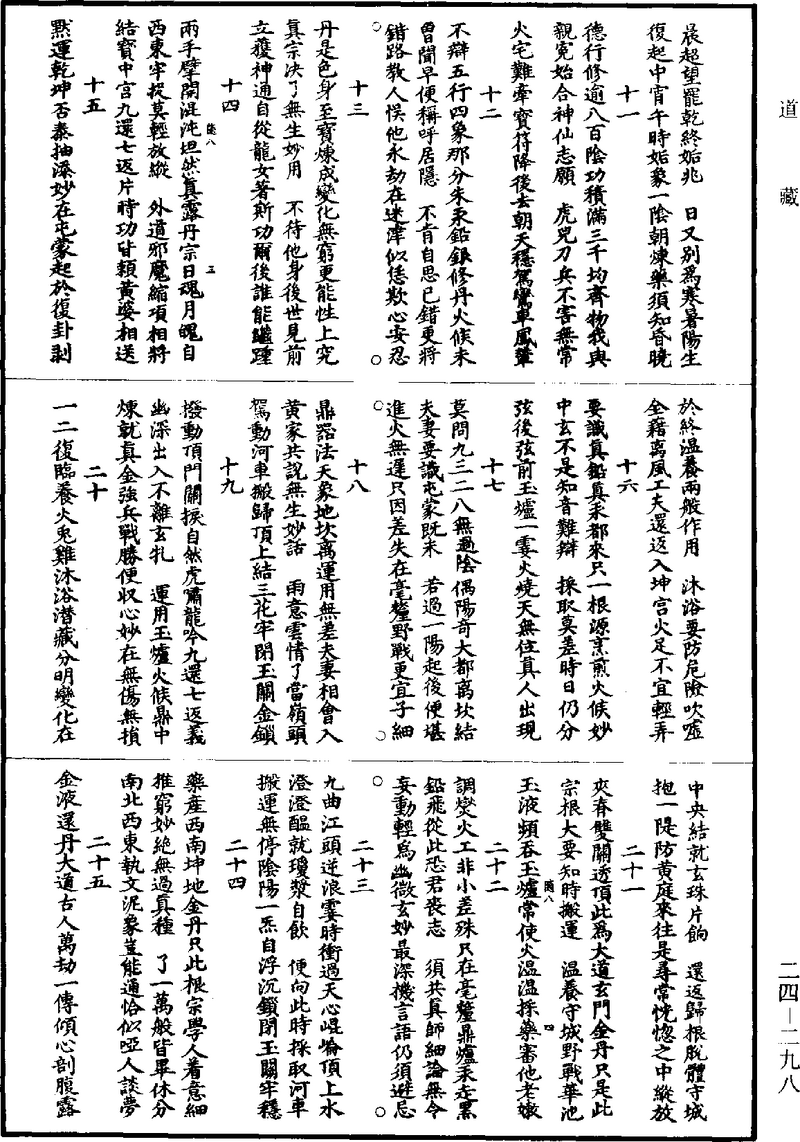 道藏
晨超望罷乾終姤兆　日又別爲寒暑陽生
復起中宵午時姤象一陰朝煉藥須知昏曉
十一
德行修逾八百陰功積滿三千均齊物我與
親冤始合神仙志願　虎兕刀兵不害無常
火宅難牽寶符降後去朝天穩駕鸞車鳳輦
十二
不辯五行四象那分朱汞鉛銀修丹火候未
曾聞早便稱呼居隱　不肯自思己錯更將
錯路教人悮他永劫在迷津似恁欺心安忍
十三
丹是色身至寶煉成變化無窮更能性上究
真宗决了無生妙用　不待他身後世見前
立獲神通自從龍女著斯功爾後誰能繼踵
十四
兩手擘開混沌坦然真露丹宗日魂月魄自
西東牢捉莫輕放縱　外道邪魔縮項相將
結寶中宮九還七返片時功皆頼黄婆相送
十五
黙運乾坤否泰抽添妙在屯蒙起於復卦剥
於終温養兩般作用　沐浴要防危險吹噓
全藉离風工夫還返入坤宫火足不宜輕弄
十六
要識真鉛真汞都來只一根源烹煎火候妙
中玄不是知音難辯　採取莫差時日仍分
弦後弦前玉爐一霎火燒天無位真人出現
十七
莫問九三二八無過陰偶陽奇大都离坎結
夫妻要識屯蒙既未　若過一陽起後便堪
進火無遲只因差失在毫釐野戰更宜子細
十八
鼎器法天象地坎离運用無差夫妻相會入
黄家共説無生妙話　雨意雲情了當嶺頭
駕動河車搬歸頂上結三花牢閉玉關金鎖
十九
撥動頂門關捩自然虎嘯龍吟九還七返義
幽深出入不離玄牝　運用玉爐火候鼎中
煉就真金強兵戰勝便收心妙在無傷無損
二十
一二復臨養火兎雞沐浴潜藏分明變化在
中央結就玄珠片餉　還返歸根脱體守城
抱一隄防黄庭來往是尋常恍惚之中縱放
二十一
夾脊雙關透頂此爲大道玄門金丹只是此
宗根大要知時搬運　温養守城野戰華池
玉液頻吞玉爐常使火温温採藥審他老嫰
二十二
調燮火工非小差殊只在毫釐鼎爐汞走黑
鉛飛從此恐君喪志　須共真師細論無令
妄動輕爲幽微玄妙最深機言語仍須避忌
二十三
九曲江頭逆浪霎時衝過天心崐崙頂上水
澄澄醖就瓊漿自飲　便向此時採取河車
搬運無停陰陽一炁自浮沉鎖閉玉關牢穩
二十四
藥産西南坤地金丹只此根宗學人着意細
推窮妙絶無過真種　了一萬般皆畢休分
南北西東執文泥象豈能通恰似啞人談夢
二十五
金液還丹大道古人萬劫一傳傾心剖腹露
二四—二九八